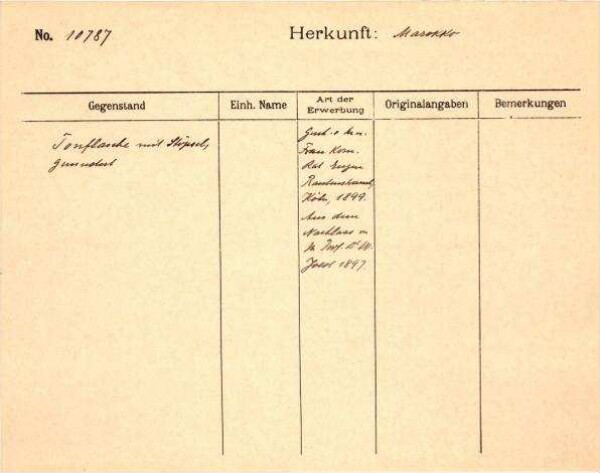 No. 10787
Herkunft: Marokko
Gegenstand
Einh. Name
Art der Erwerbung
Originalangaben
Bemerkungen
Tonflasche mit Stöpsel,
Frau Kom.
Rat Eugen
Rautenstrauch,
Köln, 1899.
Aus dem
Nachlass v.
Prof. Dr. W.
Joest 1897